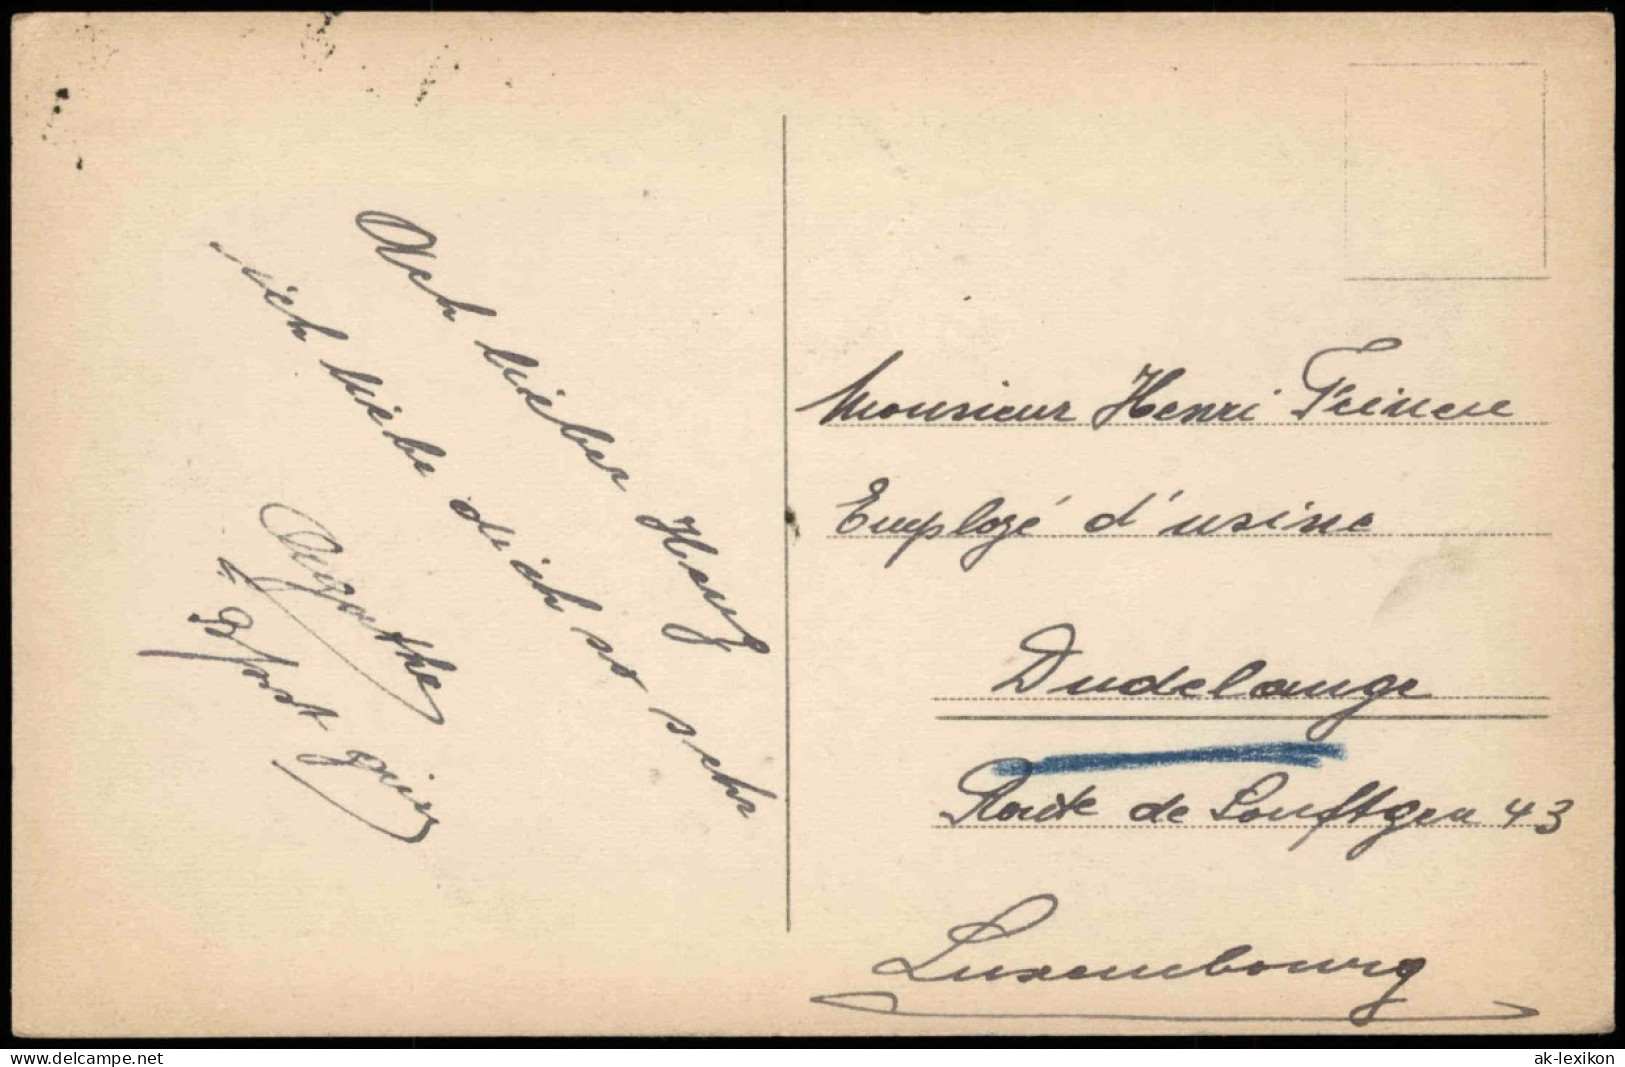 Ach lieber Henry
ich liebe dich so sehr
Agathe
Monsieur Henri
Employé d'usine
Dudelange
Route de Souftgen 43
Luxembourg
www.delcampe.net
ak-lexikon